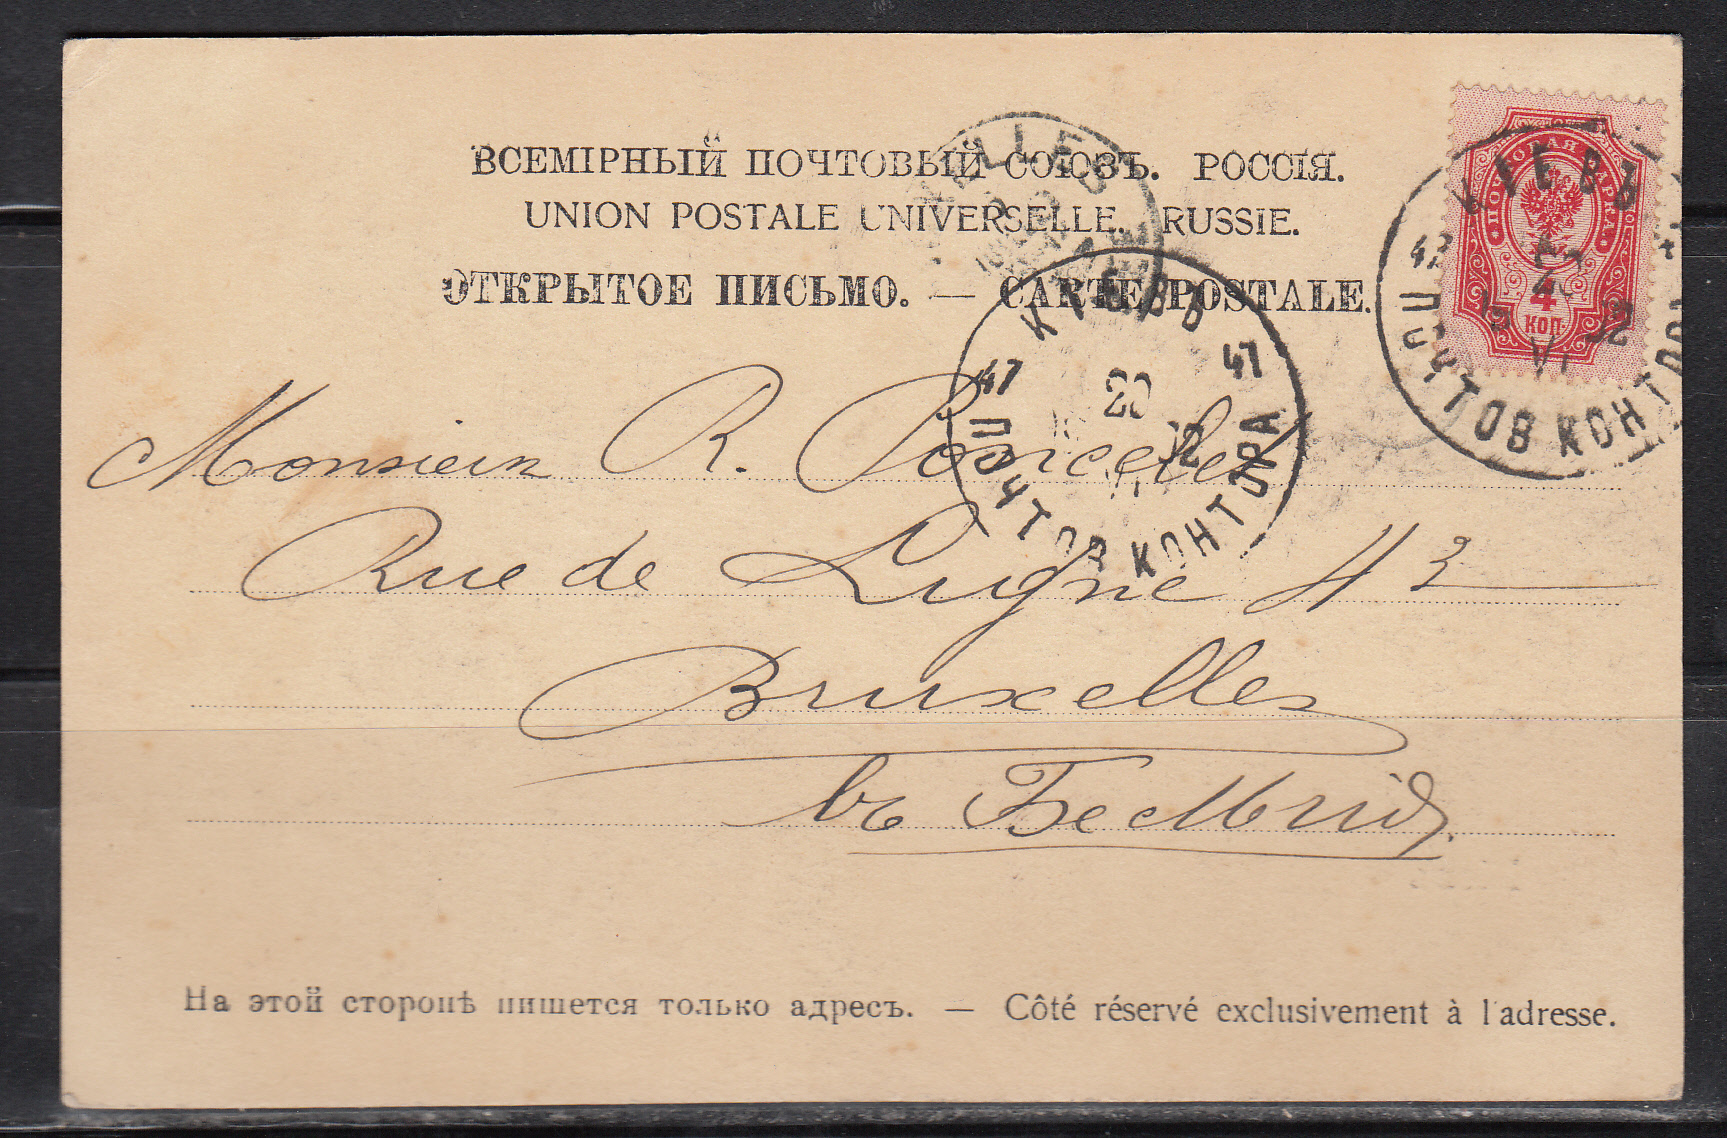 ВСЕМІРНЫЙ ПОЧТОВЫЙ СОЮЗЪ. РОССІЯ.
UNION POSTALE UNIVERSELLE. RUSSIE.
ОТКРЫТОЕ ПИСЬМО. — CARTE POSTALE.
ПОЧТОВАЯ МАРКА
4
КОП.
КІЕВЪ
20
VI
ПОЧТОВ КОНТОРА
КІЕВЪ
47 47
20
VI
ПОЧТОВ КОНТОРА
Monsieur R.
Rue de Ligne 43
Bruxelles
въ
На этой сторонѣ пишется только адресъ. — Côté réservé exclusivement à l'adresse.